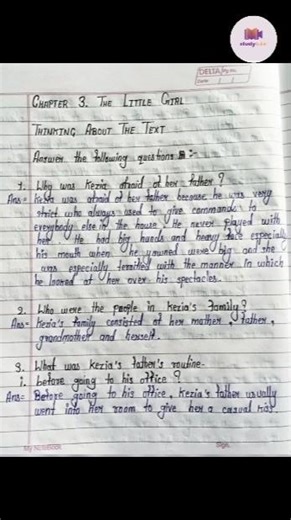 DELTA
Date
CHAPTER 3. THE LITTLE GIRL
THINKING ABOUT THE TEXT
Answer the following questions :-
1. Why was Kezia afraid of her father?
Ans= Kezia was afraid of her father because he was very
strict who always used to give commands to
everybody else in the house. He never played with
her. He had big hands and heavy face especially
his mouth when he yawned were big and she
was especially terrified with the manner in which
he looked at her over his spectacles.
2. Who were the people in Kezia's family?
Ans= Kezia's family consisted of her mother, father,
grandmother and herself.
3. What was Kezia's father's routine-
i. before going to his office?
Ans= Before going to his office, Kezia's father usually
went into her room to give her a casual kiss
My NoteBook
Sign.